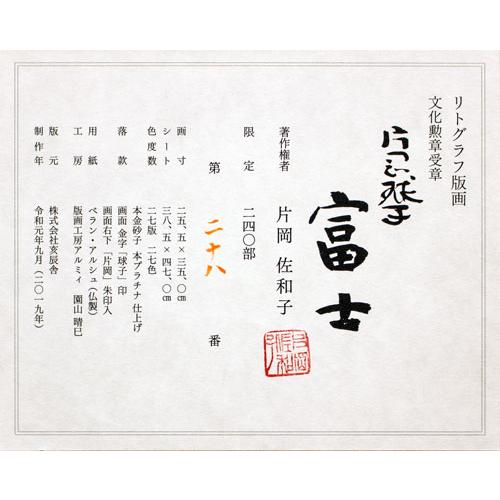 リトグラフ版画
文化勲章受章
片岡球子
富士
著作権者 片岡 佐和子
限定 二四〇部
第 二十八 番
画寸 二五、五×三五、〇㎝
シート 三八、五×四七、〇㎝
色度数 二七版 二七色
本金砂子 本プラチナ 仕上げ
落款 画面 金字「球子」印
画面右下「片岡」朱印入
用紙 ベラン・アルシュ(仏製)
工房 版画工房アルミィ 園山 晴巳
版元 株式会社亥辰舎
制作年 令和元年九月(二〇一九年)